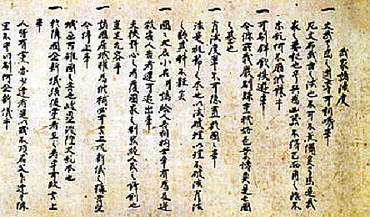 武家諸法度
一 文武弓馬之道専可相嗜事
左文右武古之法也不可不兼備矣弓馬是武
家之要枢也号兵為凶器不得已而用之治不忘
乱何不励修錬乎
一 可制群飲佚遊事
令條所載厳制殊重耽好色業博奕是亡国
之基也
一 背法度輩不可隠置於国々事
法是礼節之本也以法破理以理不破法背法
之類其科不軽矣
一 国々大名小名并諸給人各相抱士卒有為反逆
殺害人告者速可追出事
夫挟野心之者為覆国家之利器絶人民之鋒剣也
豈足允容乎
一 諸国居城雖為修補必可言上況新儀之構営堅
令停止事
城過百雉国之害也峻塁浚隍大乱本也
一 於隣国企新儀結徒党者有之者早可致言上
事
人皆有党亦少達者是以或不順君父乍違于隣
里不守旧制何企新儀乎